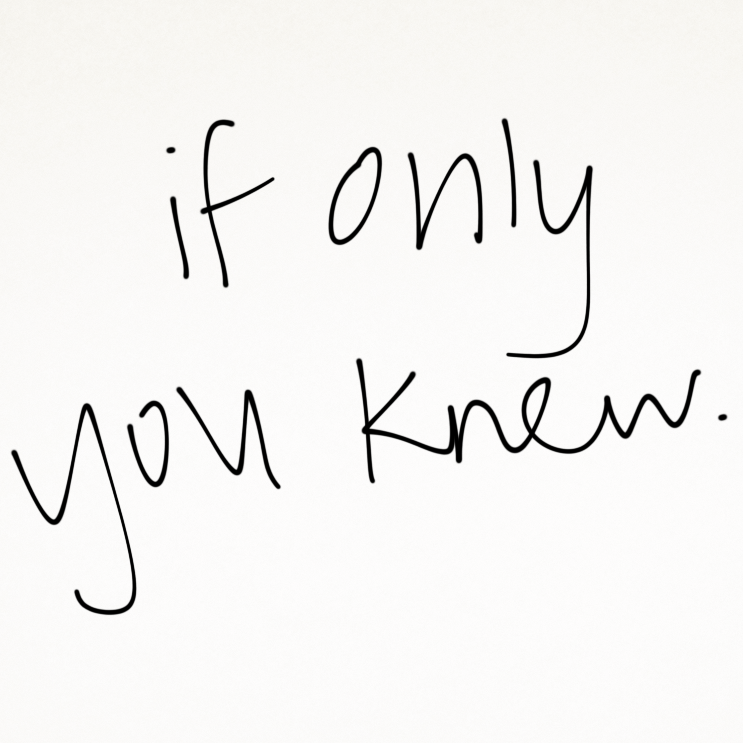 if only
you knew.